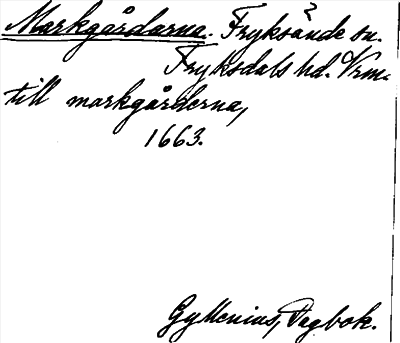 Markgårdarna. Fryksände ? sn.
Fryksdals hd. Vrm.
till markgårderna,
1663.
Gyllenius, Dagbok.